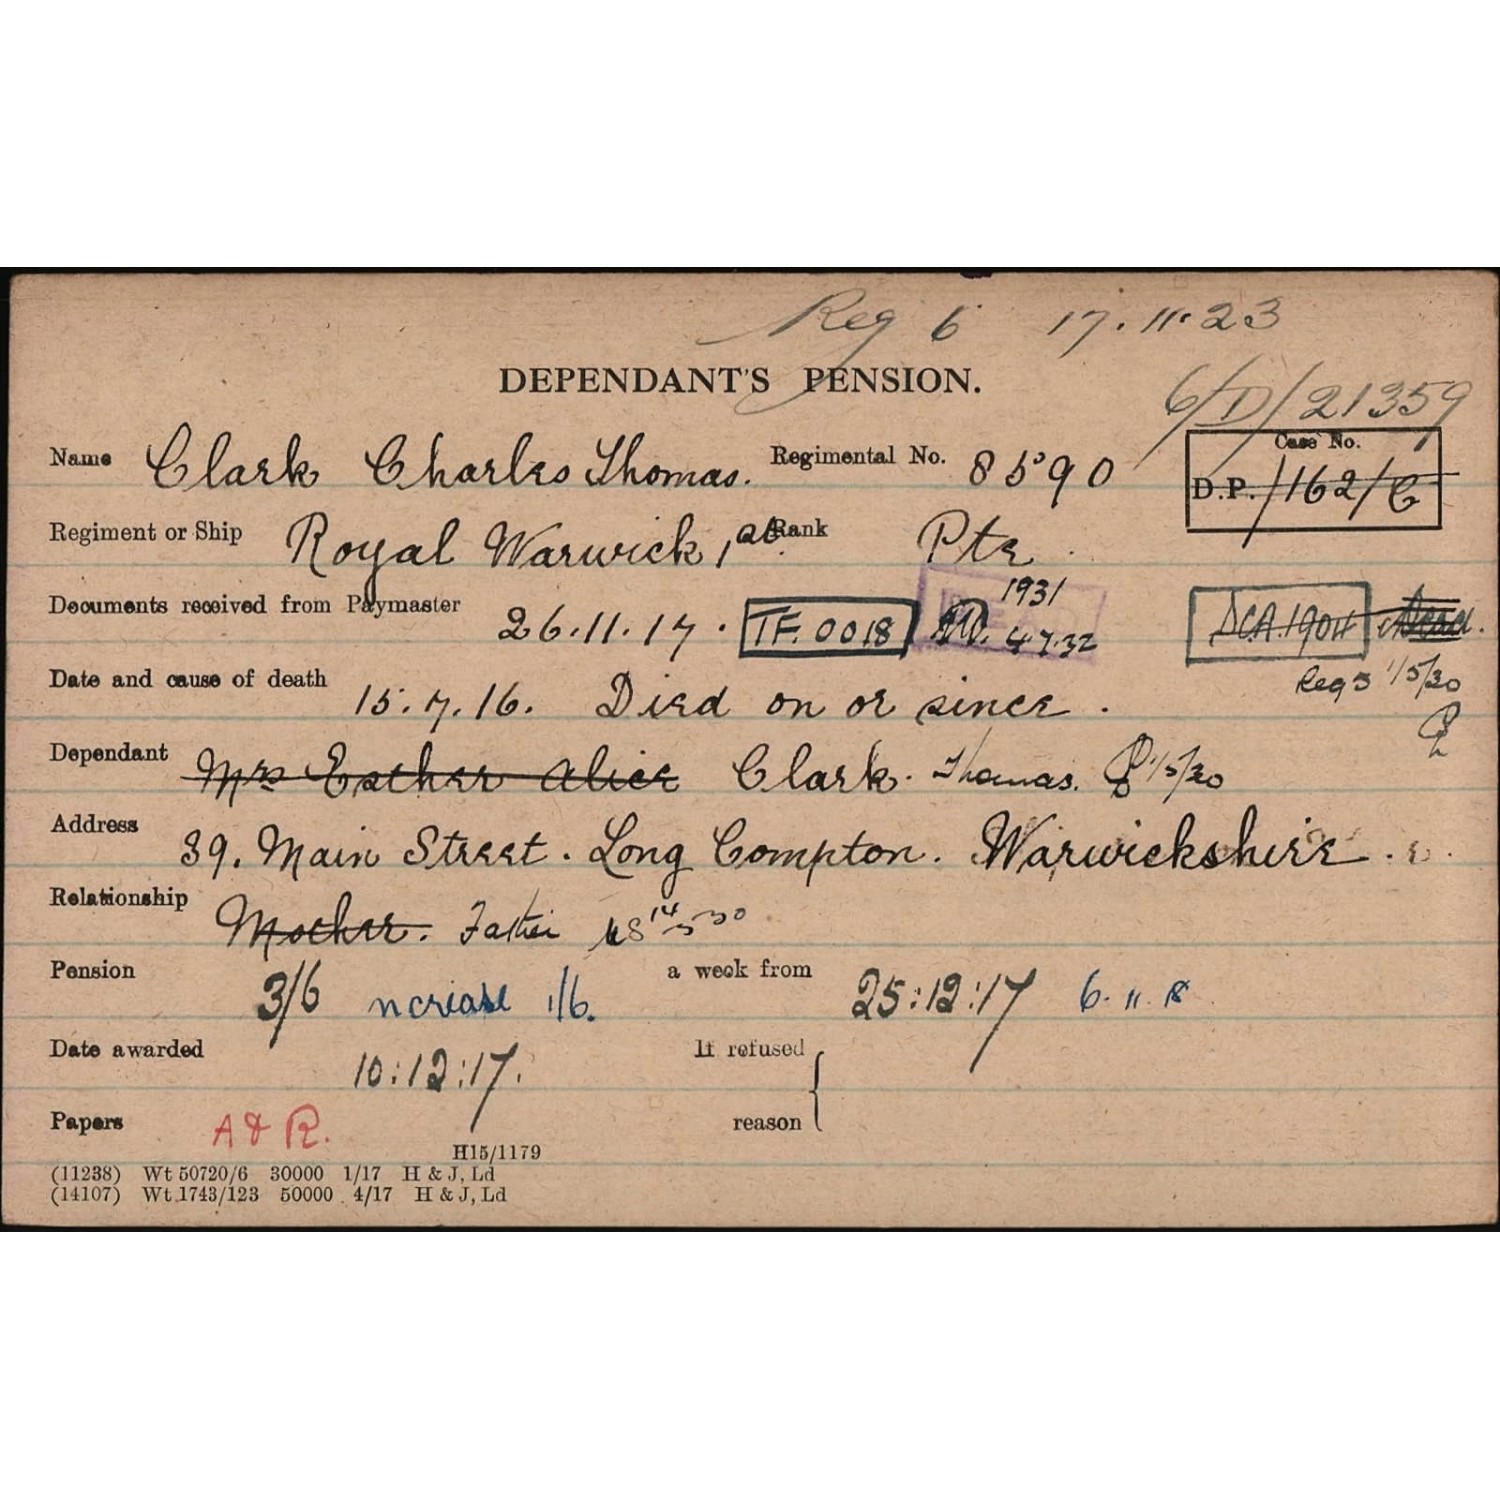 Reg 6 17.11.23
DEPENDANT'S PENSION.
6/D/21359
Name Clark Charles Thomas. Regimental No. 8590
Case No.
D.P./162/C
Regiment or Ship Royal Warwick 1st Rank Pte
Documents received from Paymaster 26.11.17. TF.0018 1931 4.7.32
DCA.1904 Dead.
Reg 3 1/5/30
Date and cause of death 15.7.16. Died on or since.
Dependant Mrs Esther Alice Clark. Thomas. 1/5/30
Address 39. Main Street. Long Compton. Warwickshire.
Relationship Mother. Father 14 5 30
Pension 3/6 ncrease 1/6. a week from 25:12:17 6.11.18
Date awarded 10:12:17. If refused
reason
Papers A & R.
H15/1179
(11238) Wt 50720/6 30000 1/17 H & J, Ld
(14107) Wt.1743/123 50000 4/17 H & J, Ld